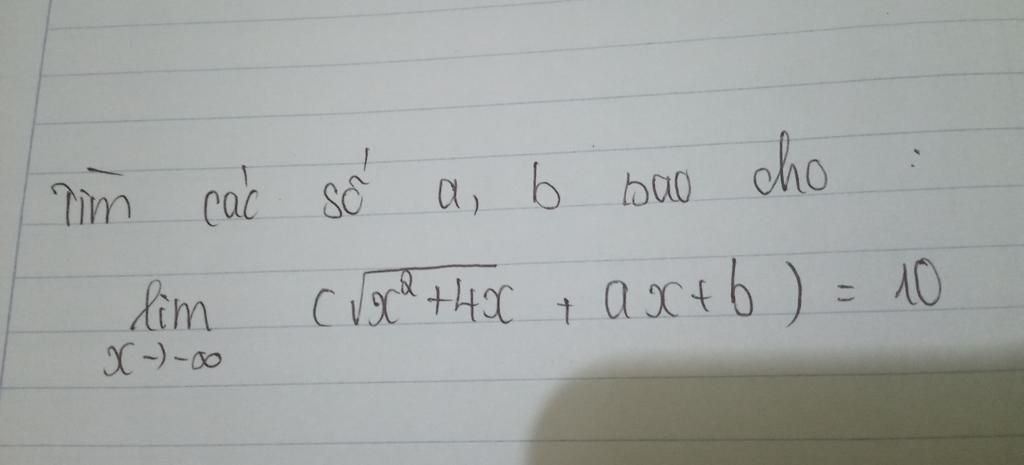 Tìm các số a, b sao cho :
lim (√x²+4x + ax+b) = 10
x→-∞